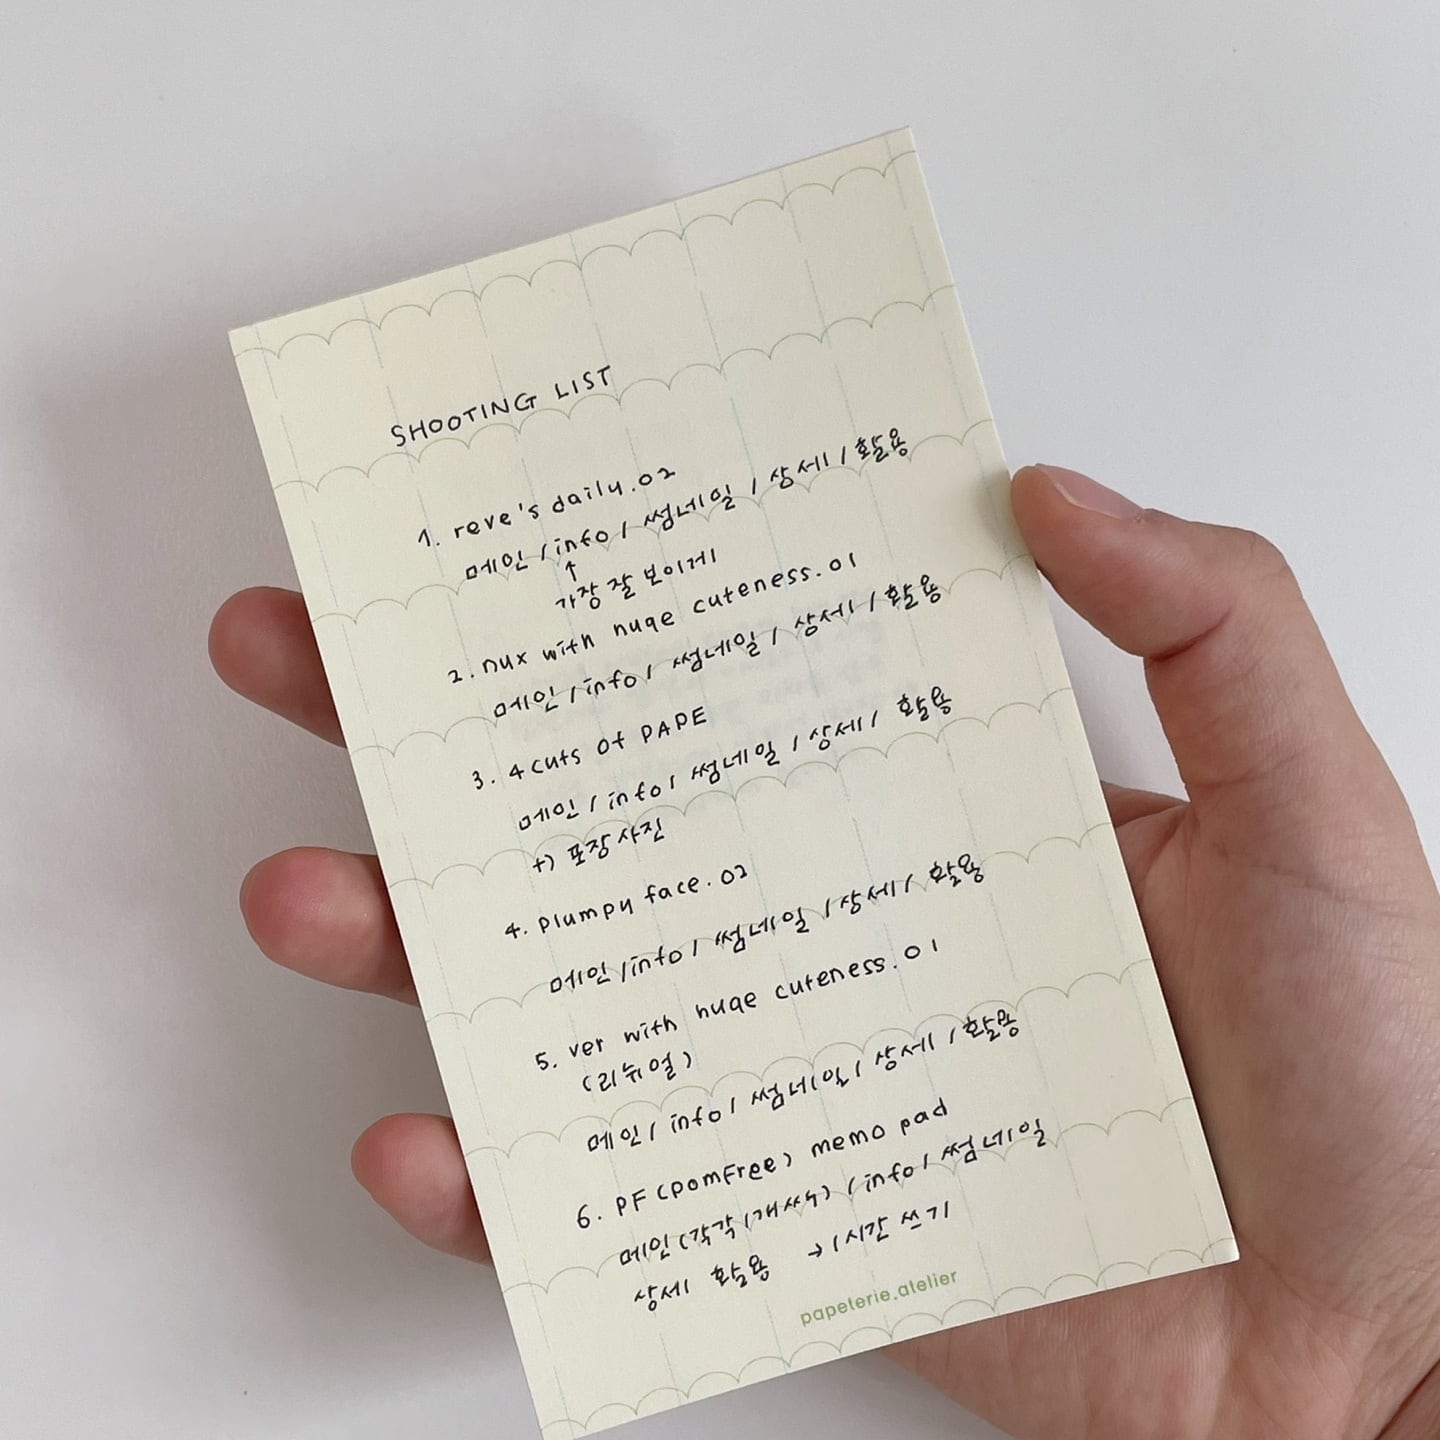 SHOOTING LIST
1. reve's daily.02
메인 / info / 썸네일 / 상세 / 활용
↑
가장 잘 보이게
2. nux with huge cuteness.01
메인 / info / 썸네일 / 상세 / 활용
3. 4cuts of PAPE
메인 / info / 썸네일 / 상세 / 활용
+) 포장 사진
4. plumpy face.02
메인 / info / 썸네일 / 상세 / 활용
5. ver with huge cuteness.01
(리뉴얼)
메인 / info / 썸네일 / 상세 / 활용
6. PF(pomFree) memo pad
메인(각각 1개씩) / info / 썸네일
상세 활용 → 1시간 쓰기
papeterie.atelier